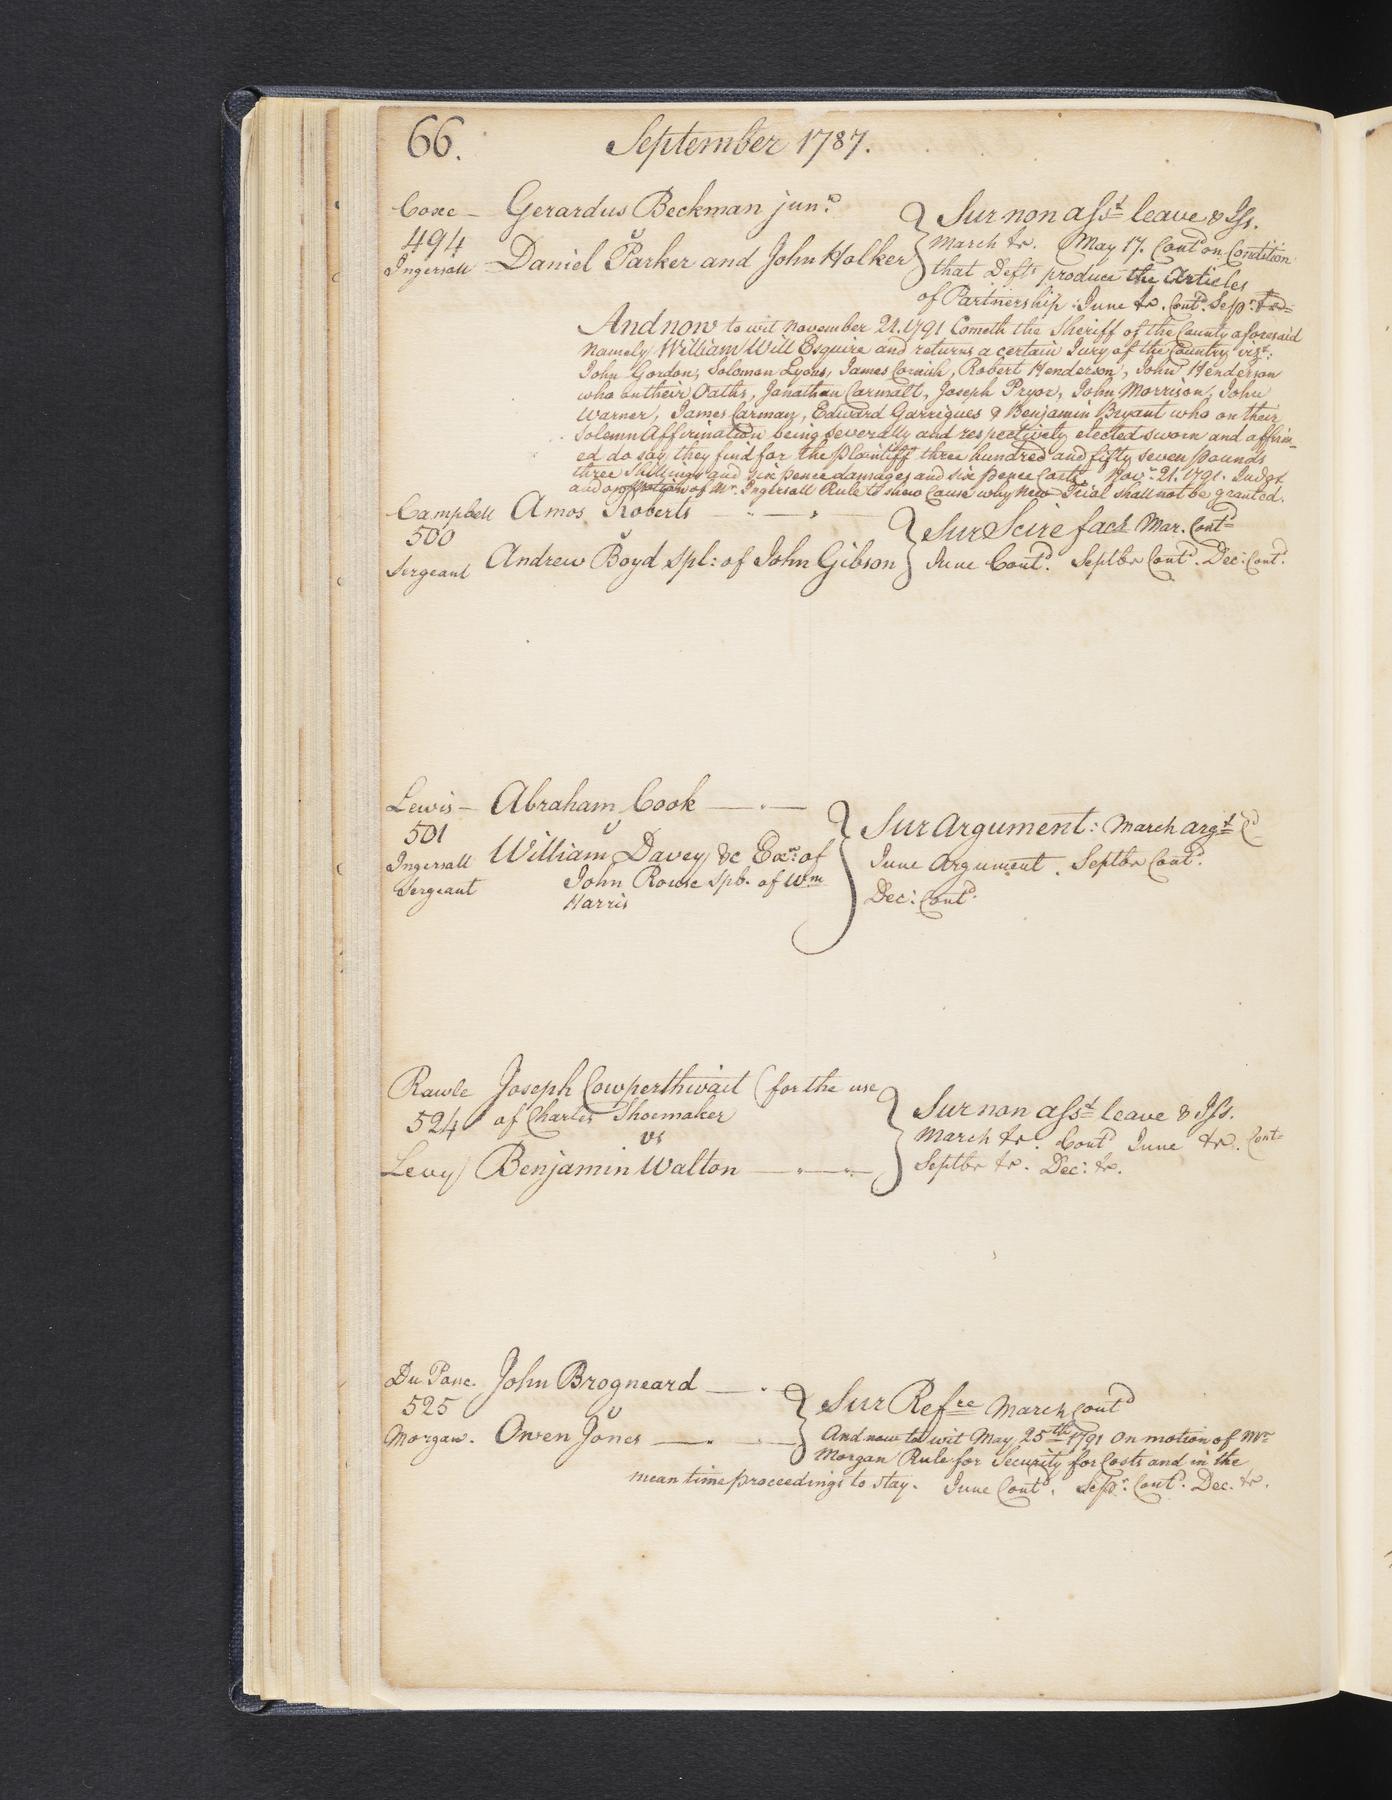 66.
September 1787.
Coxe – Gerardus Beekman junr.
494 v
Ingersoll Daniel Parker and John Holker
Sur non asst. leave & Iss.
March &c. May 17. Contd on Condition
that Defts produce the Articles
of Partnership. June &c. Contd. Sepr.
And now to wit November 21. 1791 Cometh the Sheriff of the County aforesaid
Namely William Will Esquire and returns a certain Jury of the Country vizt:
John Gordon, Solomon Lyons, James Cornish, Robert Henderson, John Henderson
who on their Oaths, Jonathan Carmalt, Joseph Pryor, John Morrison, John
Warner, James Carman, Edward Garrigues & Benjamin Bryant who on their
Solemn Affirmation being severally and respectively elected sworn and affirm-
ed do say they find for the plaintiff three hundred and fifty seven pounds
three shillings and six pence damages and six pence Costs. Novr. 21. 1791. Judgt
and on motion of Mr. Ingersoll Rule to shew Cause why New Trial shall not be granted.
Campbell Amos Roberts
500 v
Sergeant Andrew Boyd Spl: of John Gibson
Sur Scire facs Mar. Contd
June Contd. Septbr Contd. Dec: Contd.
Lewis – Abraham Cook
501 v
Ingersoll William Davey &c Exrs. of
Sergeant John Rowe Spb. of Wm
Harris
Sur Argument: March argt Cd
June Argument. Septbr Contd.
Dec: Contd.
Rawle Joseph Cowperthwait (for the use
524 of Charles Shoemaker
vs
Levy Benjamin Walton
Sur non asst leave & Iss.
March &c. Contd June &c. Cont
Septbr &c. Dec: &c.
Du Ponc. John Brogneard
525 v
Morgan. Owen Jones
Sur Refce March Contd
And now to wit May 25th 1791 On motion of Mr
Morgan Rule for Security for Costs and in the
mean time proceedings to stay. June Contd. Sepr. Contd. Dec. &c.